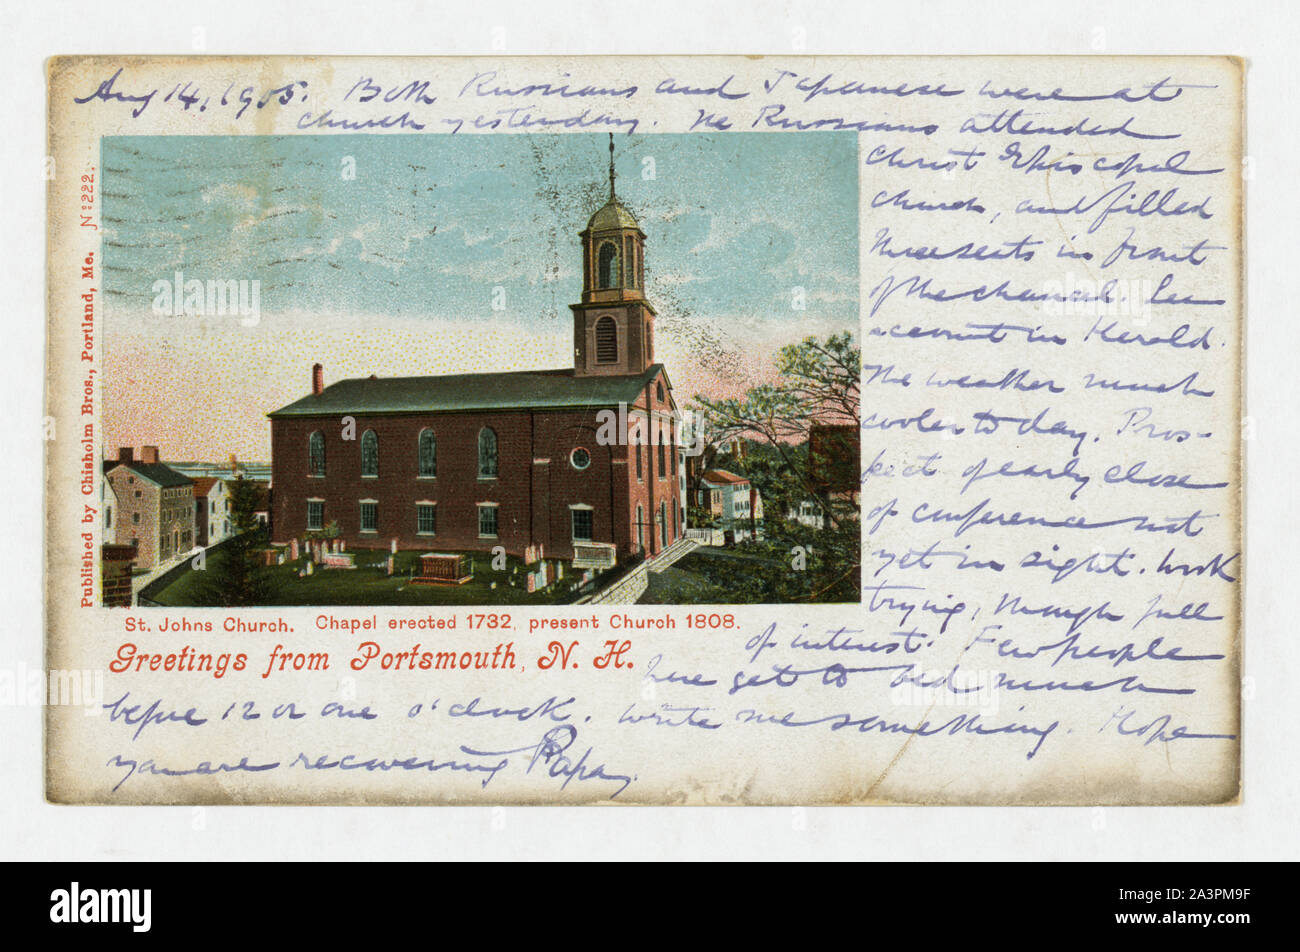 Aug 14, 1905. Both Russians and Japanese were at
church yesterday. The Russians attended
Christ Episcopal
church, and filled
three seats in front
of the chancel. See
account in Herald.
The weather much
cooler to day. Pros-
pect of early close
of conference not
yet in sight. Work
trying, though full
of interest. Few people
here get to bed much
before 12 or one o'clock. Write me something. Hope
you are recovering Papa.
Published by Chisholm Bros., Portland, Me. No 222.
St. Johns Church. Chapel erected 1732, present Church 1808.
Greetings from Portsmouth, N. H.
alamy
alamy
alamy
a
a
a
a
a
alamy
Image ID: 2A3PM9F
www.alamy.com